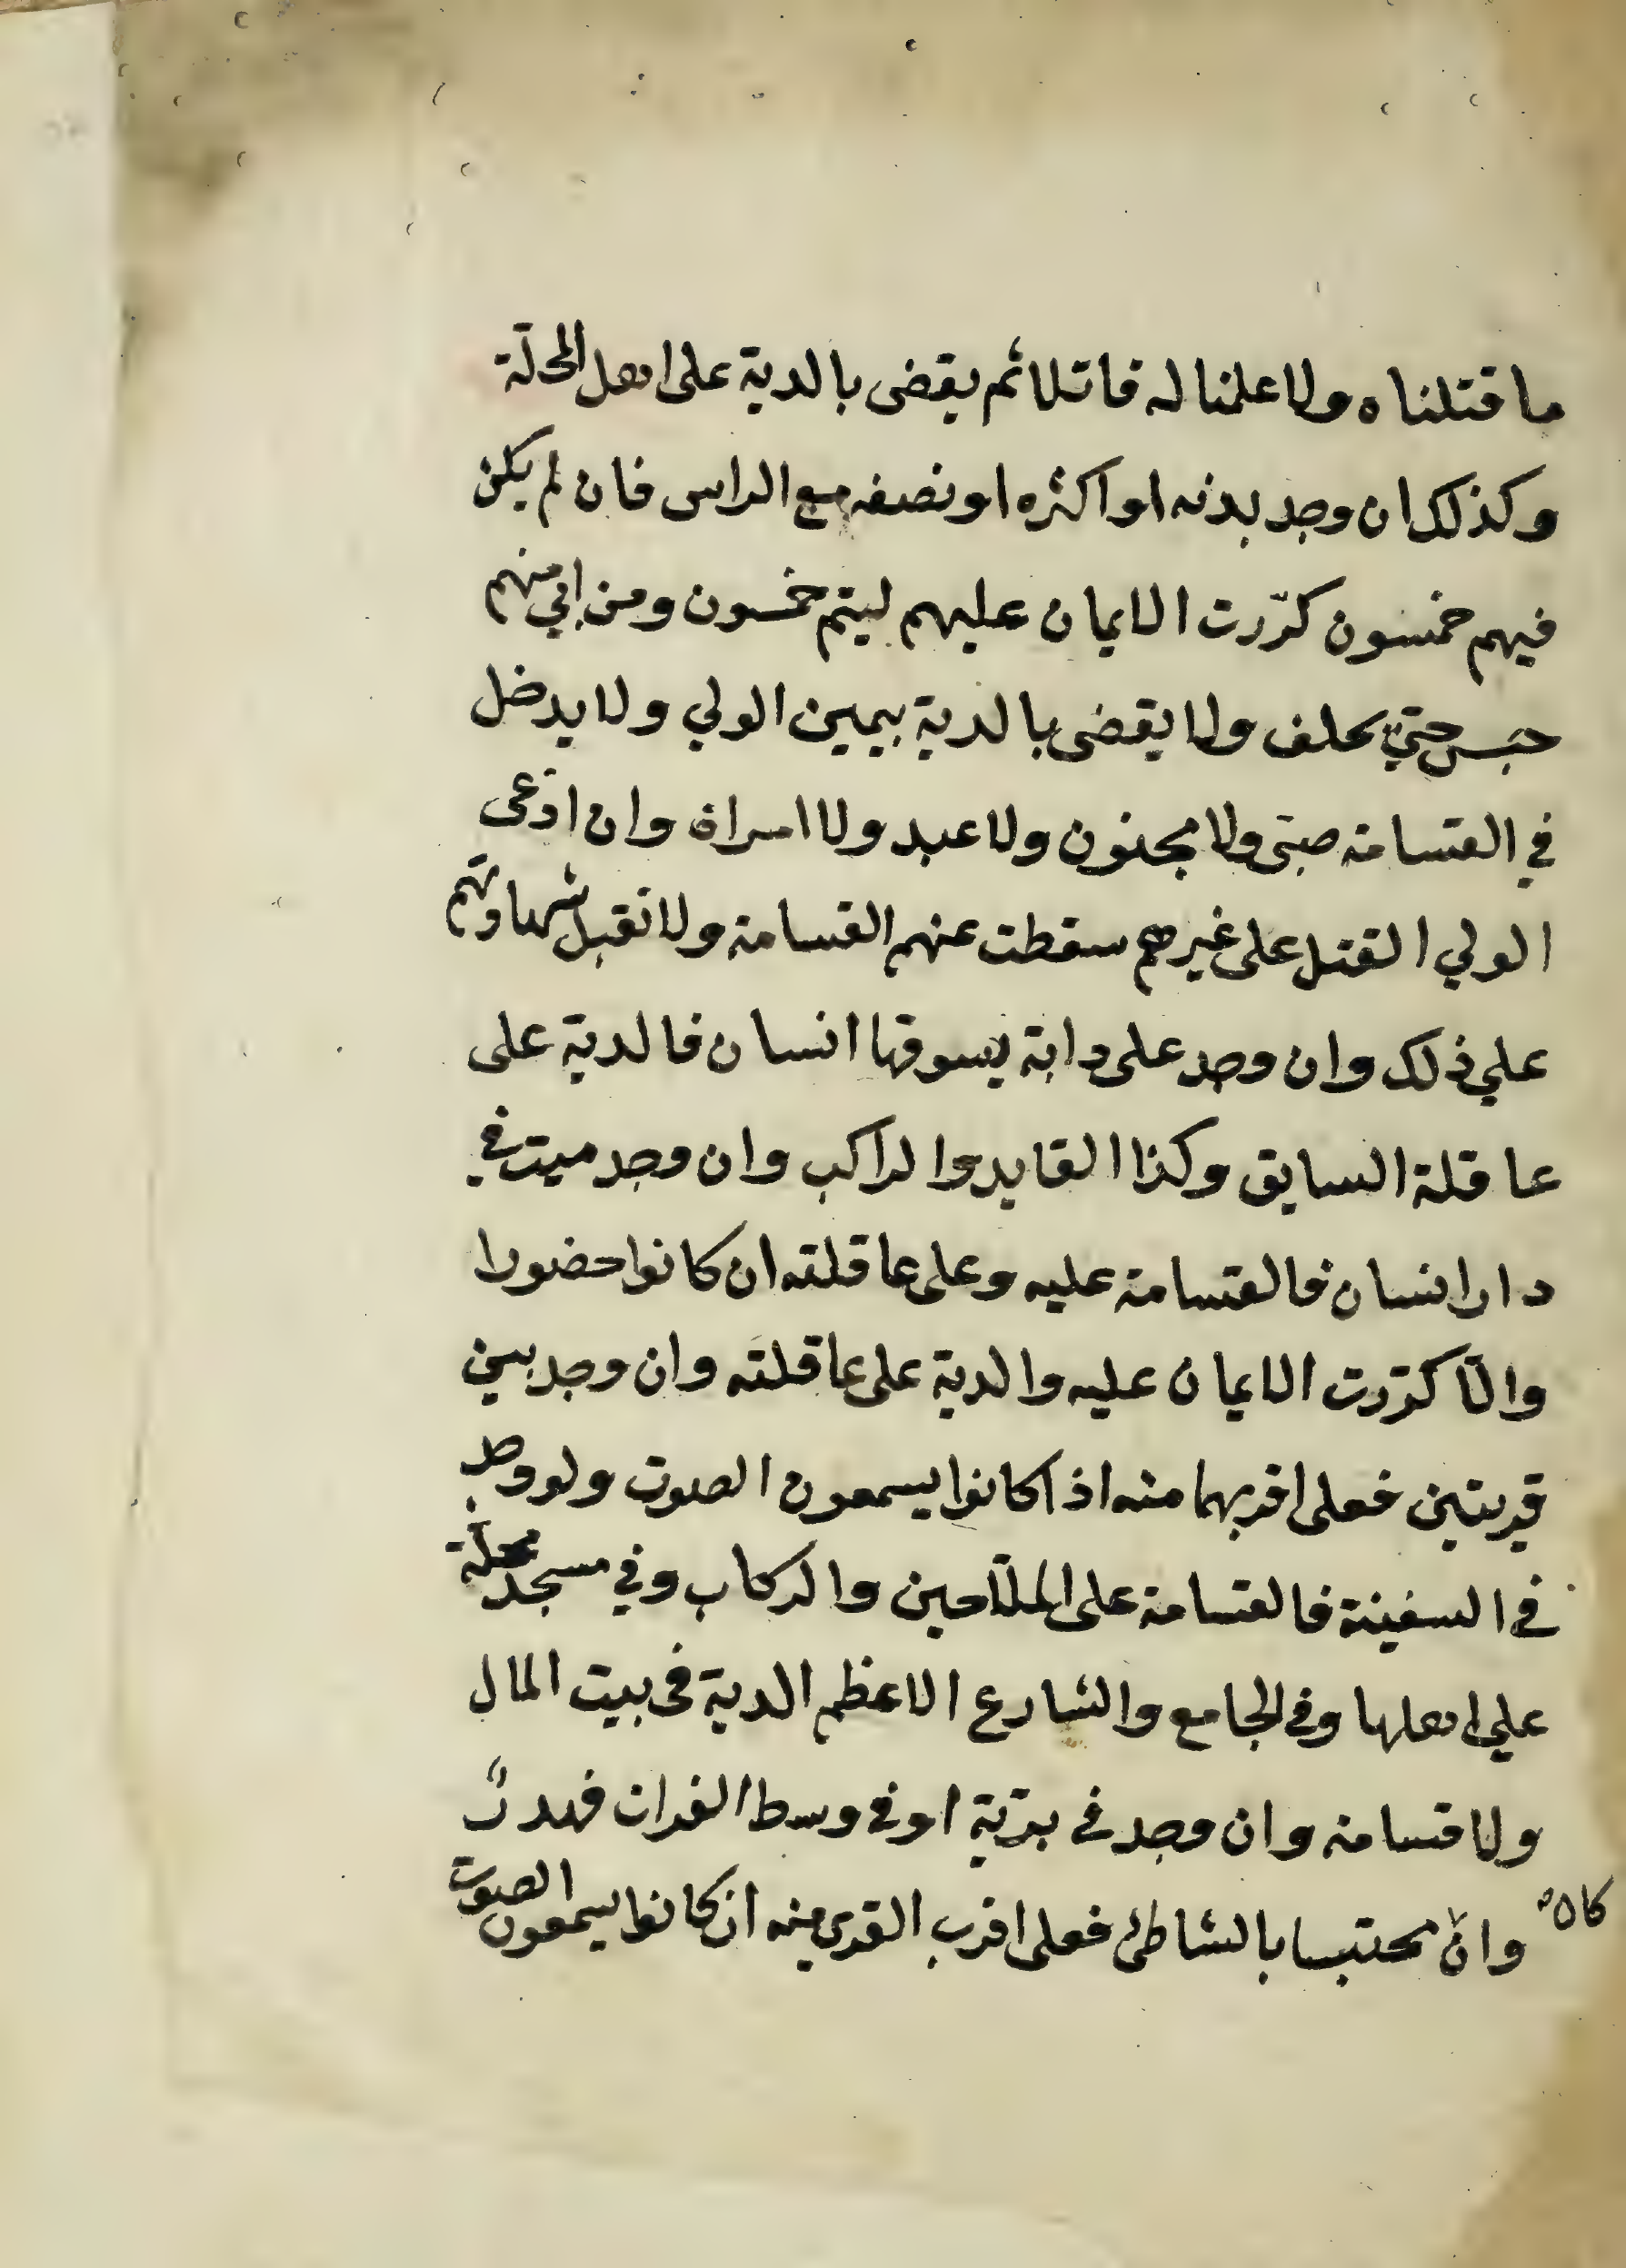 ما قتلناه ولا علمنا له قاتلا ثم يقضى بالدية على اهل المحلّة
وكذلك ان وجد بدنه او اكثره او نصفه مع الراس فان لم يكن
فيهم خمسون كرّرت الايمان عليهم ليتم خمسون ومن ابي منهم
حبس حتي يحلف ولا يقضى بالدية بيمين الولي ولا يدخل
في القسامة صبى ولا مجنون ولا عبد ولا امراة وان ادّعى
الولي القتل على غيرهم سقطت عنهم القسامة ولا تقبل شهادتهم
علي ذلك وان وجد على دابة يسوقها انسان فالدية على
عاقلة السايق وكذا القايد والراكب وان وجد ميت في
دار انسان فالقسامة عليه وعلى عاقلته ان كانوا حضورا
والّا كرّرت الايمان عليه والدية على عاقلته وان وجد بين
قريتين فعلى اقربهما منه اذا كانوا يسمعون الصوت ولو وجد
في السفينة فالقسامة على الملّاحين والركاب وفي مسجد محلّة
علي اهلها وفي الجامع والشارع الاعظم الدية فى بيت المال
ولا قسامة وان وجد في برّية او في وسط الفرات فهدرٌ
وان محتبسا بالشاطئ فعلى اقرب القرى منه ان كانوا يسمعون الصوت
كان